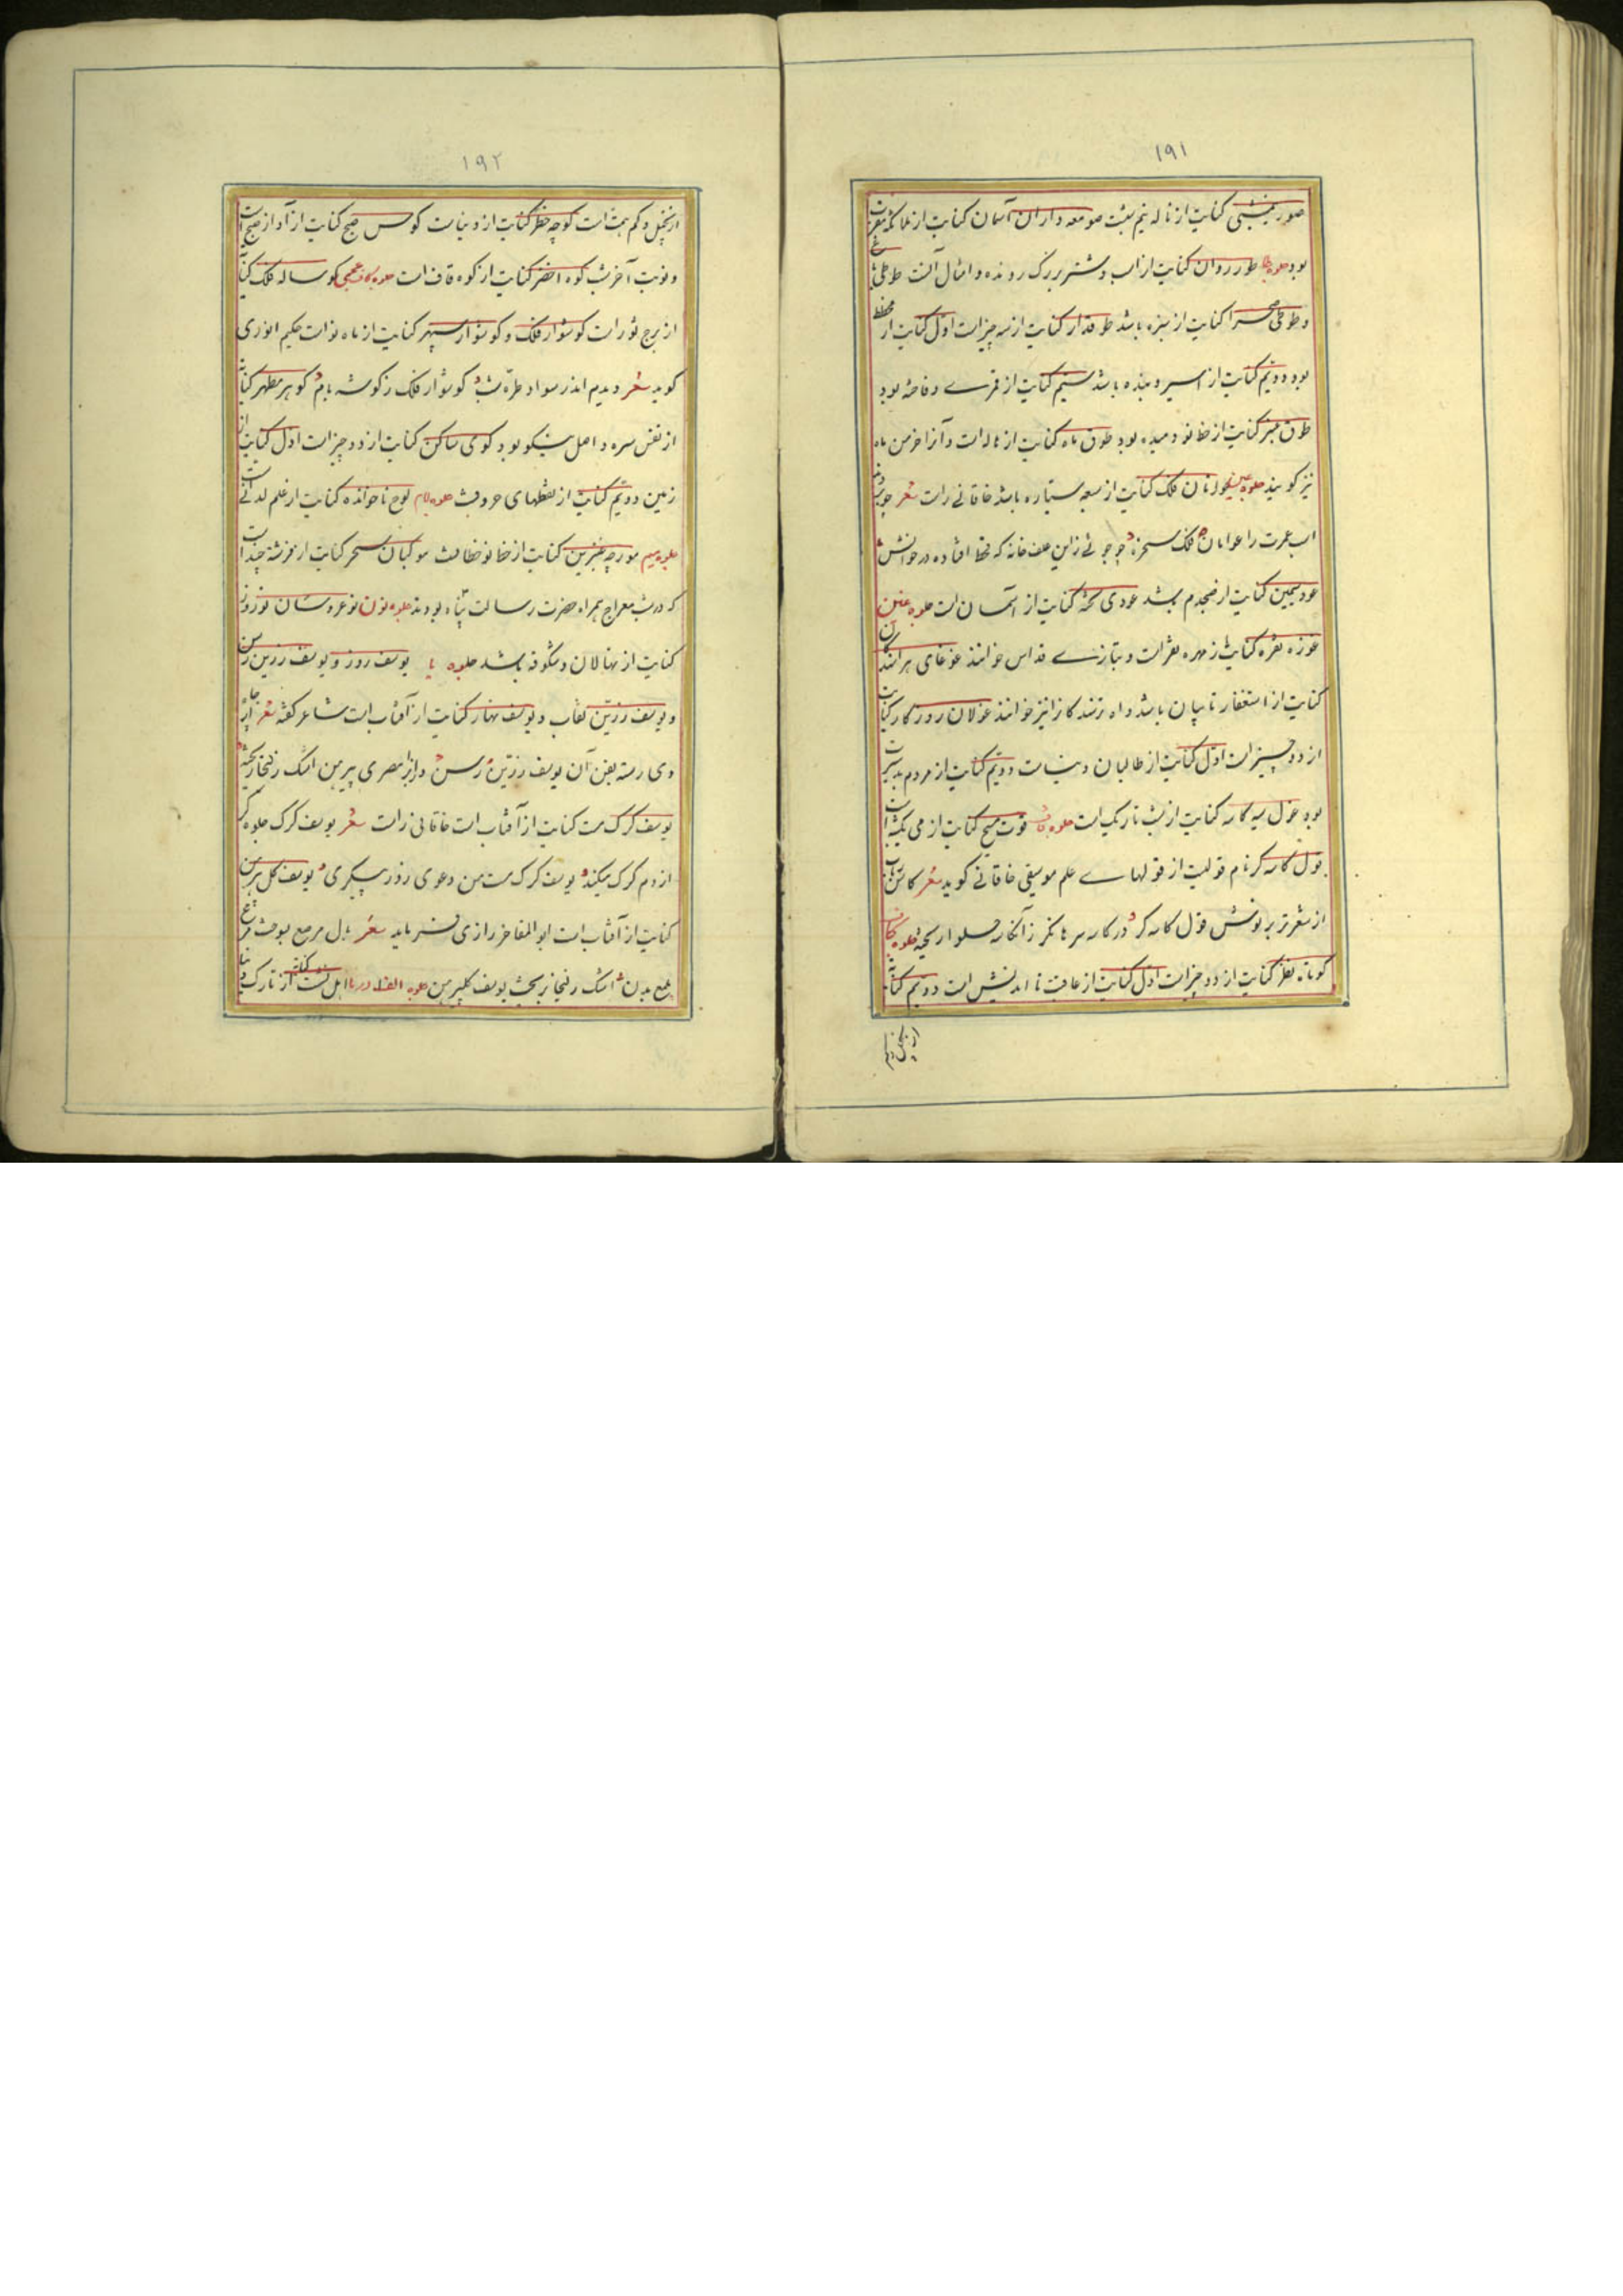 ۱۹۱
صور نیم‌شبی کنایت از ناله نیم شبست صومعه داران آسمان کنایت از ملائکه مقرب
بود جلوه طا طور روان کنایت از اسب و شتر بزرگ رونده و امثال آنست طوطی
و طوطی صحرا کنایت از سبزه باشد طوقدار کنایت از سه چیز است اول کنایت از
بود دویم کنایت از اسیر و بنده باشد سیم کنایت از قمری و فاخته بود
طوق عنبر کنایت از خط نو دمیده بود طوق ماه کنایت از هاله است و آنرا خرمن ماه
نیز گویند جلوه عین عوانان فلک کنایت از سبعه سیاره باشد خاقانی راست شعر
اسب عمرت را عوانان فلک سخره چو جوئی زاین علف خانه که قحط افتاده در
عود سیمین کنایت از صبحدم باشد عودی کنایت از آسمان است جلوه غین
غوزه نقره کنایت ز مهره نقرات و بتازی قداس خوانند غوغای
کنایت از استغفار تایبان باشد و اه خوانند غولان روزگار کنایت
از دو چیز است اول کنایت از طالبان دنیاست دویم کنایت از مردم بد سیرت
بود غول سیه کاسه کنایت از شب تاریک است جلوه قاف قوت مسیح کنایت از می
قول کاسه گر نام قولیست از قولهای علم موسیقی خاقانی گوید شعر
از شعر تر بنوش قول کاسه گر در کاسه سرها نگر زآن کاسه حلوا ریخته جلوه کاف
کوتاه نظر کنایت از دو چیز است اول کنایت از عاقبت نا اندیش است دویم کنایت
از بخیل و کم
۱۹۲
از بخیل و کم همت است کوچه خطر کنایت از دنیاست کوس صبح کنایت از آواز صبح است
و نوبت آخر شب کوه اخضر کنایت از کوه قاف است جلوه کاف عجمی گوساله فلک
از برج ثور است گوشوار فلک و گوشوار سپهر کنایت از ماه نو است حکیم انوری
گوید شعر دیدم اندر سواد طره شب گوشوار فلک ز گوشه بام گوهر مطهر
از نفس سره و اصل نیکو بود گوی ساکن کنایت از دو چیز است اول کنایت از
زمین دویم کنایت از نقطهای حروفست جلوه لام لوح ناخوانده کنایت از علم لدنی است
جلوه میم مورچه عنبرین کنایت از خط نوخطانست موکبان سحر کنایت از فرشته چند است
که در شب معراج همراه حضرت رسالت پناه بودند جلوه نون نوعروسان نوروزی
کنایت از نهالان و شکوفه باشد جلوه یا یوسف روز و یوسف زرین رسن
و یوسف زرین نقاب و یوسف نهار کنایت از آفتاب است شاعر گفته شعر
دی رسته بفن آن یوسف زرین رسن وآنرا مصری پیرهن اشک زلیخا ریخته
یوسف گرگ مست کنایت از آفتاب است خاقانی راست شعر یوسف گرگ جلوه گر
از دم گرگ میکند یوسف گرگ مست من دعوی روز پیکری یوسف گل پیرهن
کنایت از آفتاب است ابوالمفاخر رازی فرماید شعر بال مرصع بسوخت مرغ
ملمع بدن اشک زلیخا بریخت یوسف گلپیرهن جلوه الف اهل نشست کنایه از تارک دنیا